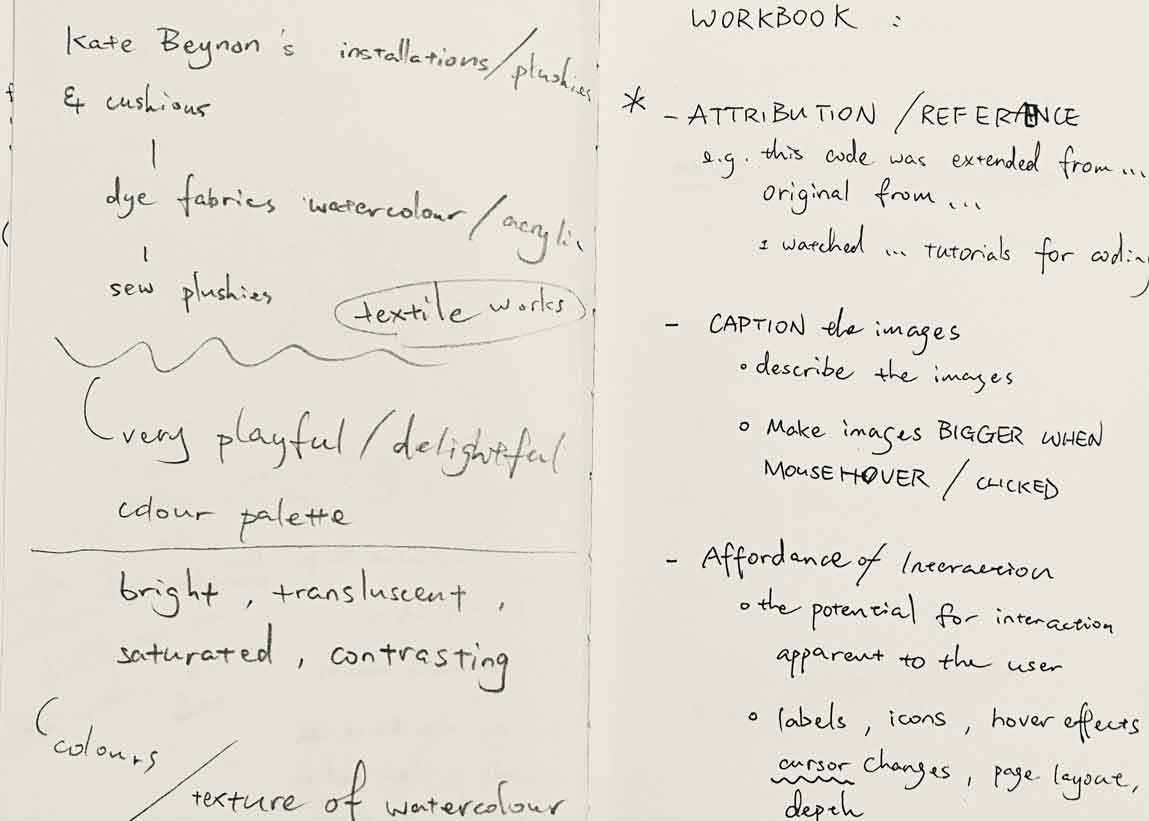 Kate Beynon's installations/plushies
& cushions
dye fabrics watercolour/acrylic
sew plushies
textile works
very playful/delightful
colour palette
bright, transluscent,
saturated, contrasting
colours
/texture of watercolour
WORKBOOK :
* - ATTRIBUTION /REFERENCE
e.g. this code was extended from...
original from...
I watched ... tutorials for coding
- CAPTION the images
• describe the images
• Make images BIGGER WHEN
MOUSEHOVER / CLICKED
- Affordance of Interaction
• the potential for interaction
apparent to the user
• labels, icons, hover effects
cursor changes, page layout,
depth